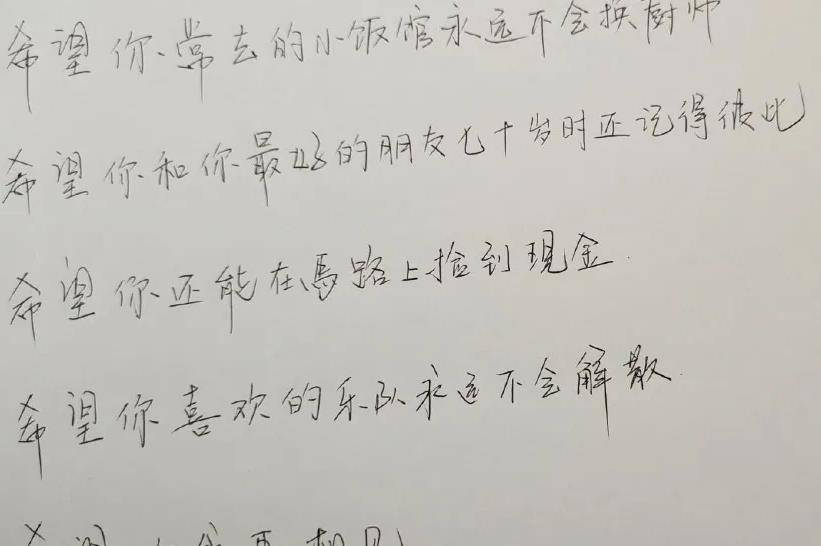 希望你常去的小饭馆永远不会换厨师
希望你和你最好的朋友七十岁时还记得彼此
希望你还能在馬路上捡到现金.
希望你喜欢的乐队永远不会解散.
希望